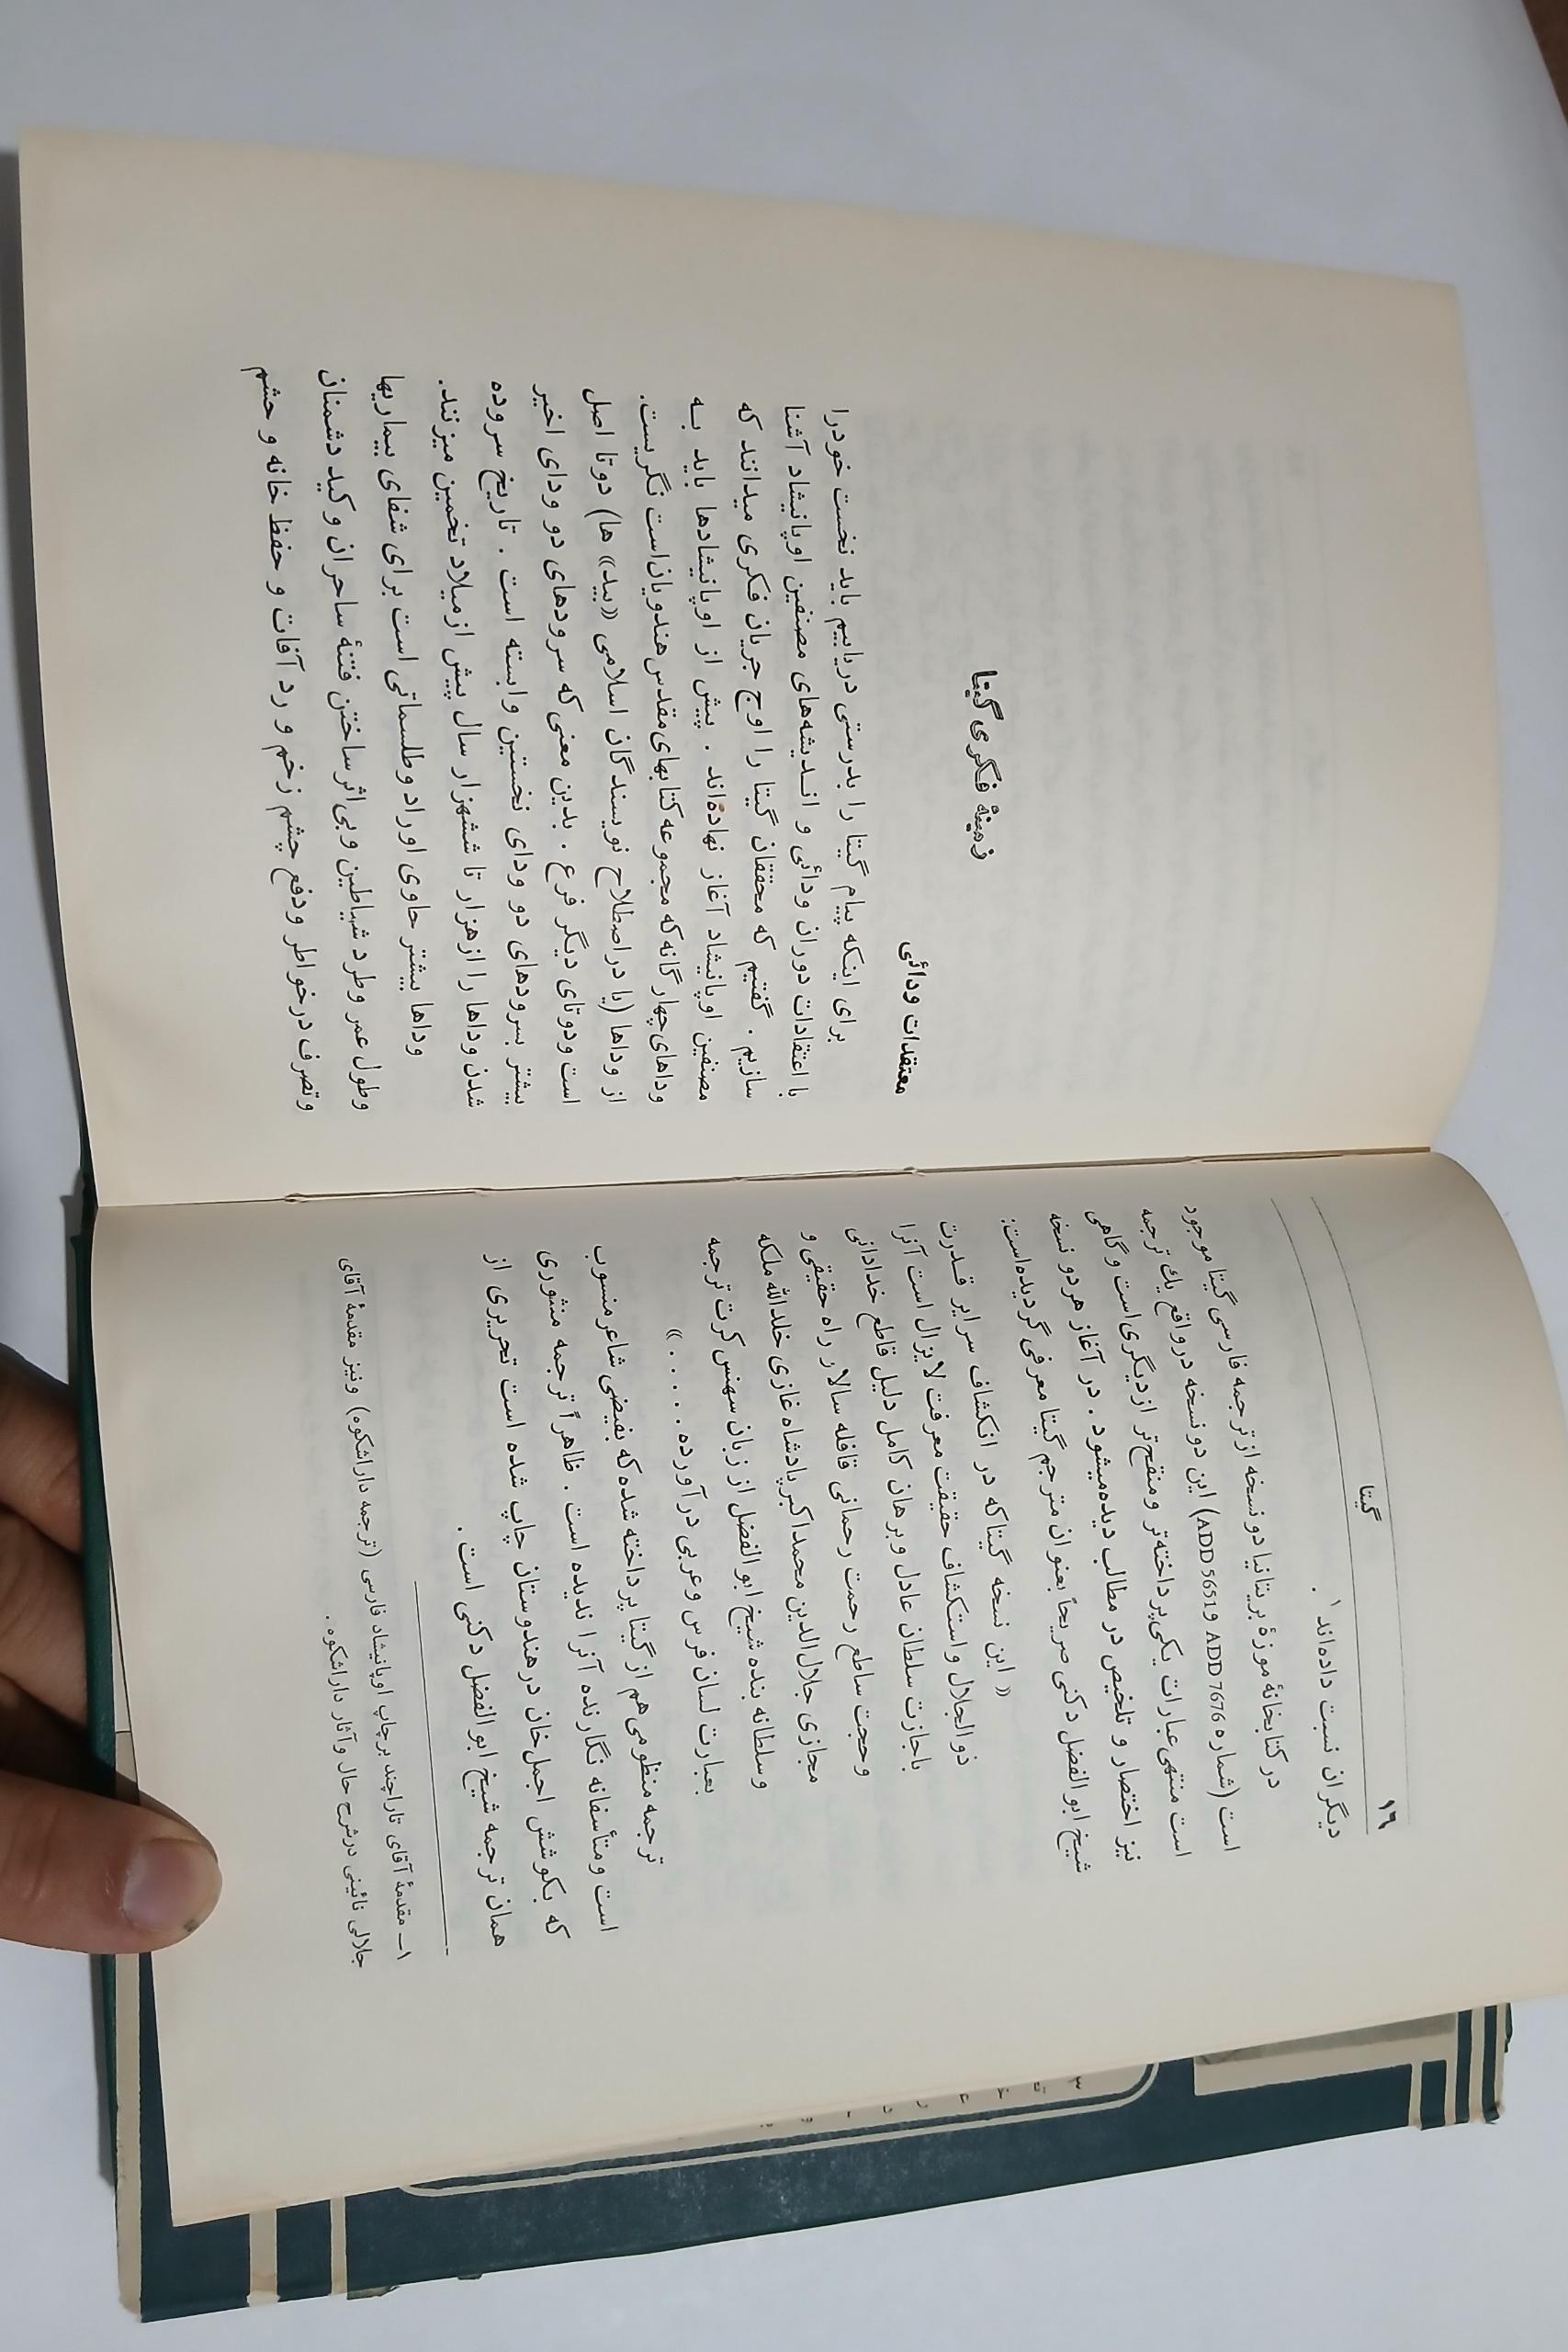 ۱۶
گیتا
دیگران نسبت داده‌اند ۱ .
در کتابخانهٔ موزهٔ بریتانیا دو نسخه از ترجمه فارسی گیتا موجود
است (شماره ADD 7676 و ADD 5651) این دو نسخه در واقع یك ترجمه
است منتهی عبارات یکی پرداخته‌تر و منقح‌تر از دیگری است و گاهی
نیز اختصار و تلخیص در مطالب دیده میشود . در آغاز هر دو نسخه
شیخ ابوالفضل دکنی صریحاً بعنوان مترجم گیتا معرفی گردیده‌است:
« این نسخه گیتا که در انکشاف سرایر قـدرت
ذوالجلال و استکشاف حقیقت معرفت لایزال است آنرا
باجازت سلطان عادل و برهان کامل دلیل قاطع خدادانی
و حجت ساطع رحمت رحمانی قافله سالار راه حقیقی و
مجازی جلال‌الدین محمد اکبر پادشاه غازی خلدالله ملکه
و سلطانه بنده شیخ ابوالفضل از زبان سهنس کرت ترجمه
بعبارت لسان فرس و عربی در آورده . . . . . »
ترجمه منظومی هم از گیتا پرداخته شده که بفیضی شاعر منسوب
است و متأسفانه نگارنده آنرا ندیده است . ظاهراً ترجمه منثوری
که بکوشش اجمل‌خان در هندوستان چاپ شده است تحریری از
همان ترجمه شیخ ابوالفضل دکنی است .
۱ـ مقدمهٔ آقای تاراچند بر چاپ اوپانیشاد فارسی (ترجمه داراشکوه) و نیز مقدمهٔ آقای
جلالی نائینی در شرح حال و آثار داراشکوه .
زمینهٔ فکری گیتا
معتقدات ودائی
برای اینکه پیام گیتا را بدرستی دریابیم باید نخست خود را
با اعتقادات دوران ودائی و انـدیشه‌های مصنفین اوپانیشاد آشنا
سازیم . گفتیم که محققان گیتا را اوج جریان فکری میدانند که
مصنفین اوپانیشاد آغاز نهاده‌اند . پیش از اوپانیشادها باید بـه
وداهای چهارگانه که مجموعه کتابهای مقدس هندویان است نگریست.
از وداها (یا در اصطلاح نویسندگان اسلامی «بید» ها) دوتا اصل
است و دوتای دیگر فرع . بدین معنی که سرودهای دو ودای اخیر
بیشتر بسرودهای دو ودای نخستین وابسته است . تاریخ سروده
شدن وداها را از هزار تا ششهزار سال پیش از میلاد تخمین میزنند.
وداها بیشتر حاوی اوراد و طلسماتی است برای شفای بیماریها
و طول عمر و طرد شیاطین و بی‌اثر ساختن فتنهٔ ساحران و کید دشمنان
و تصرف در خواطر و دفع چشم زخم و رد آفات و حفظ خانه و حشم